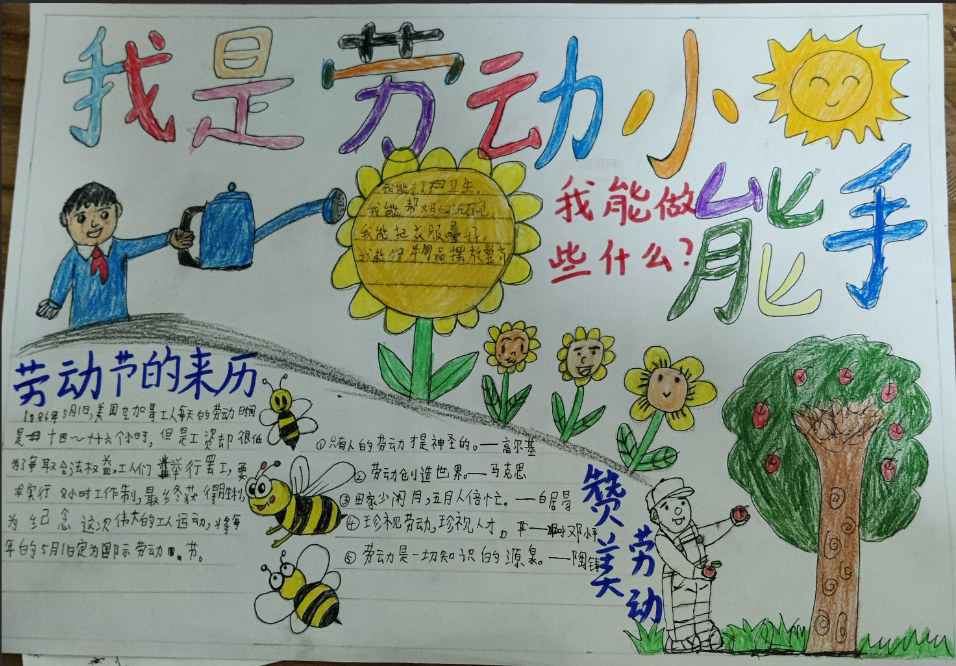 我是劳动小
能手
我能打扫卫生。
我能帮妈妈洗碗
我能把衣服叠好。
我能将物品摆放整齐
我能做
些什么?
劳动节的来历
1886年5月1日,美国芝加哥工人每天的劳动时间
是十四~十六个小时,但是工资却很低
为了争取合法权益,工人们举行罢工,要
求实行8小时工作制,最终获得胜利。
为纪念这次伟大的工人运动,将每
年的5月1日定为国际劳动节。
①只有人的劳动才是神圣的。——高尔基
②劳动创造世界。——马克思
③田家少闲月,五月人倍忙。——白居易
④珍视劳动,珍视人才,——邓小平
⑤劳动是一切知识的源泉。——陶铸
赞美
劳动